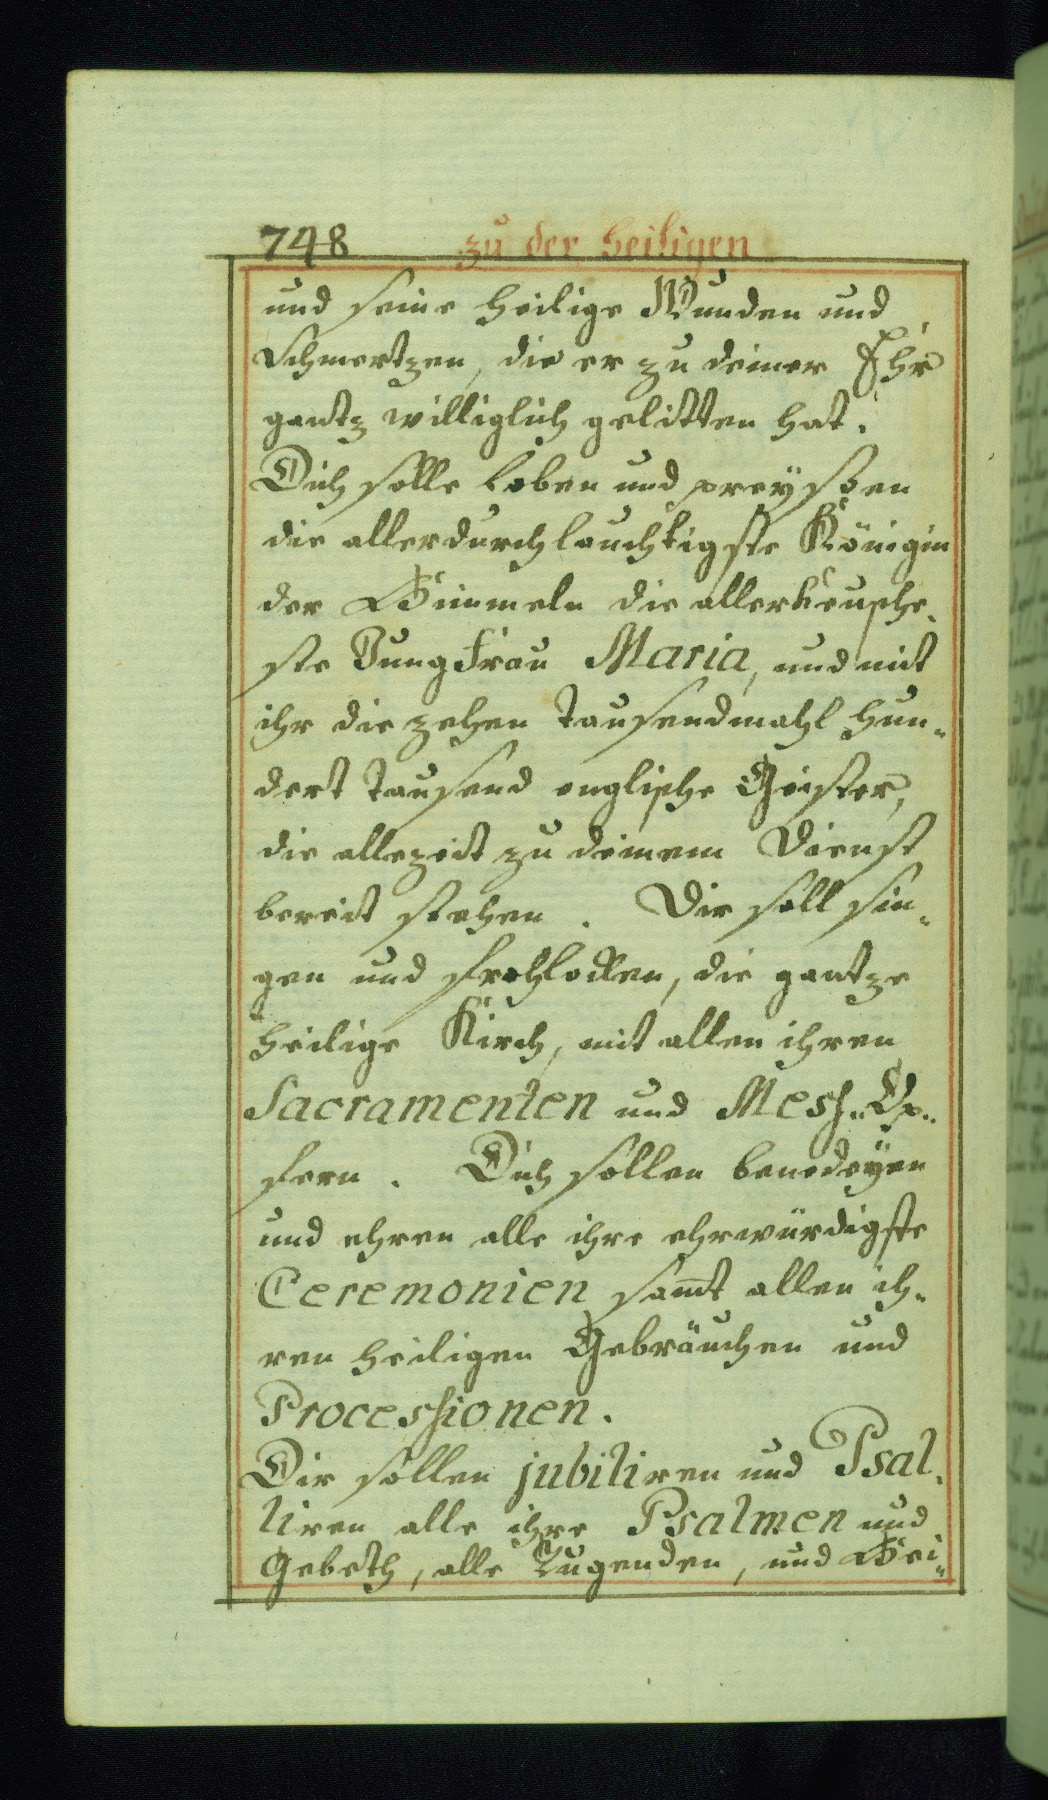 748 zu der heiligen
und seine heilige Wunden und
Schmertzen, die er zu deiner Ehr
gantz williglich gelitten hat.
Dich solle loben und preyßen
die allerdurchlauchtigste Königin
der Himmeln die allerkeusche-
ste Jungfrau Maria, und mit
ihr die zehen tausendmahl hun-
dert tausend englische Geister,
die allezeit zu deinem Dienst
bereit stehen. Dir soll sin-
gen und frohlocken, die gantze
heilige Kirch, mit allen ihren
Sacramenten und Mess-Op-
fern. Dich sollen benedeyen
und ehren alle ihre ehrwürdigste
Ceremonien sam̄t allen ih-
ren heiligen Gebräuchen und
Processionen.
Dir sollen jubiliren und Psal-
liren alle ihre Psalmen und
Gebeth, alle Tugenden, und Hei-